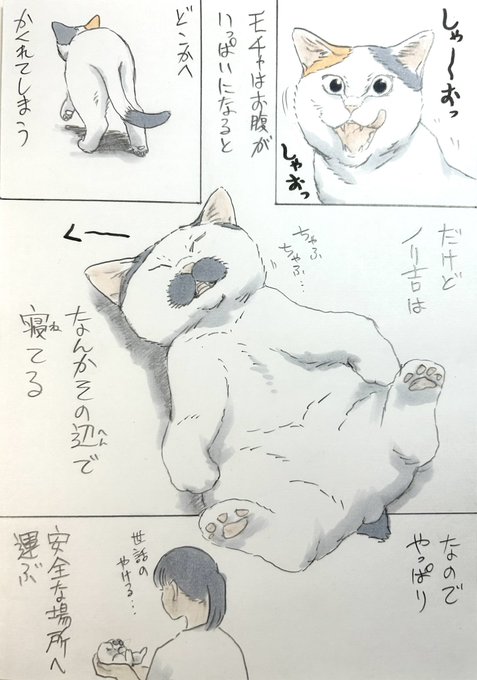 しゃ〜おっ
しゃおっ
モチャはお腹が
いっぱいになると
どこかへ
かくれてしまう
だけど
ノリ吉は
ちゃぷ
ちゃぷ…
く——
なんかその辺で
へん
寝てる
ね
なので
やっぱり
世話の
やける…
安全な場所へ
運ぶ